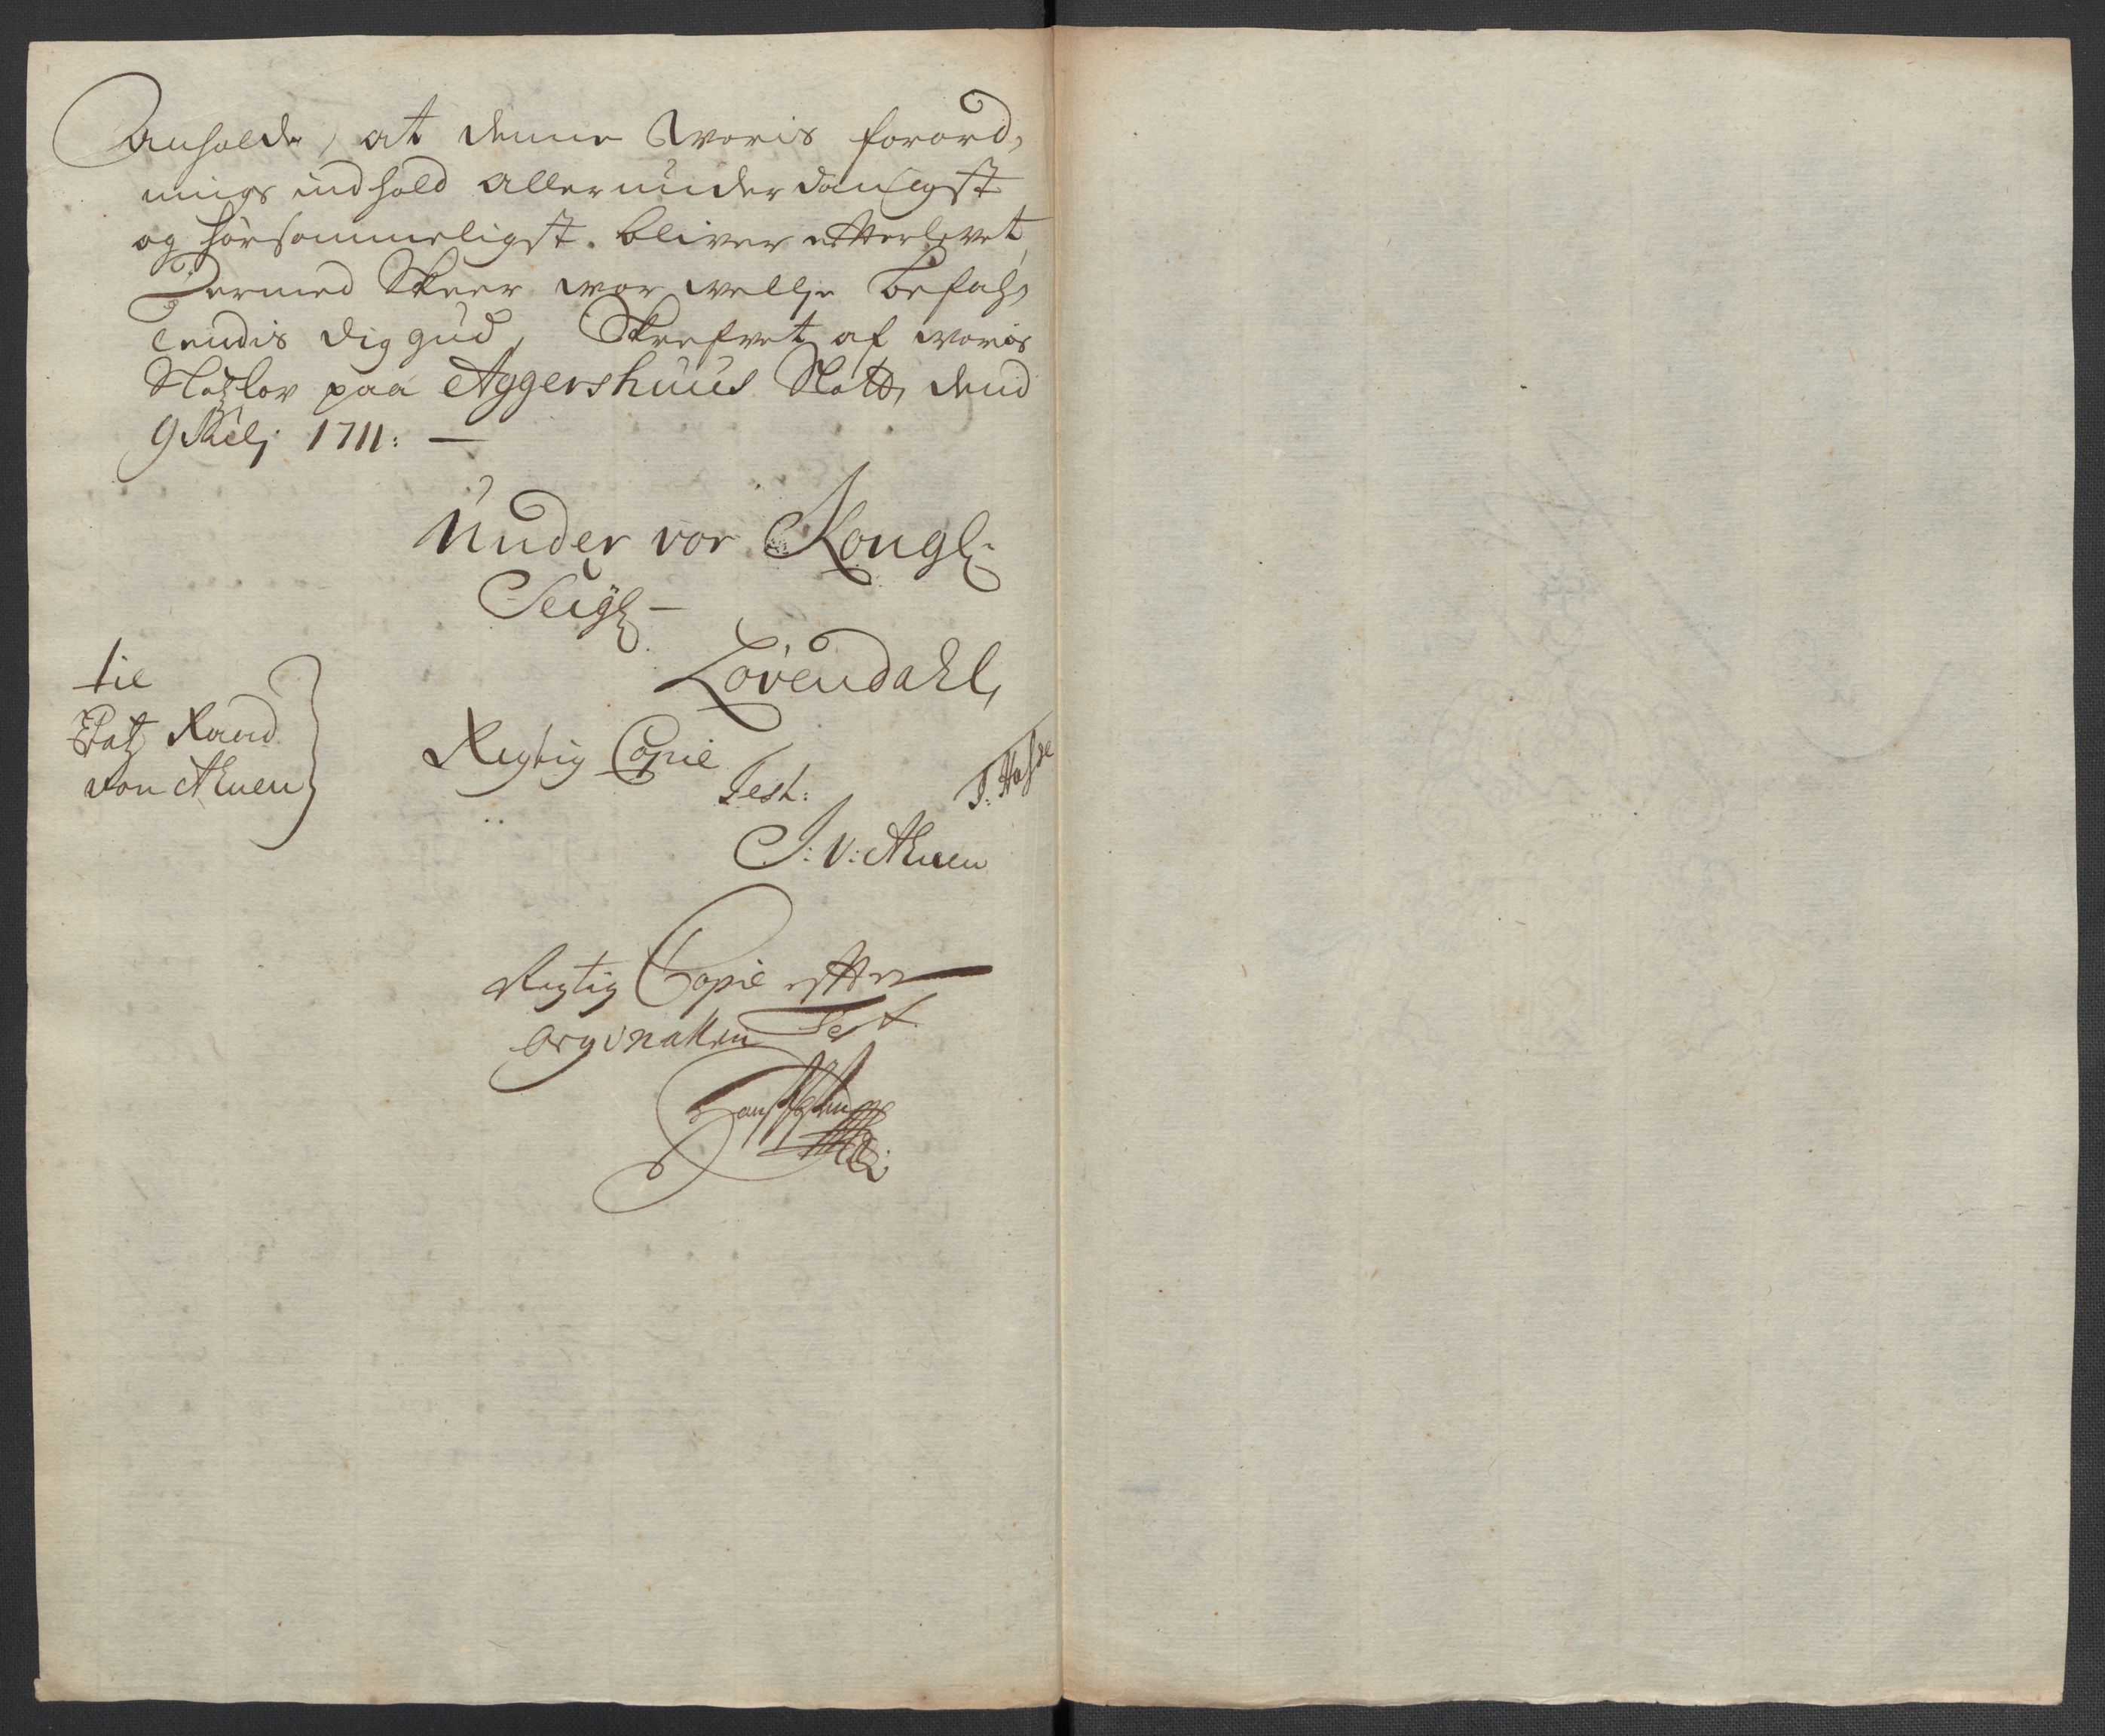 Anholde, at denne Woris forord,
nings indhold allerunderdanigst
og hørsommeligst. bliver etterlevet,
Dermed Skeer vor vellje Befah,
lendis dig gud, Skrefvet af woris
Slotzlov paa Aggershuus Slott, dend
9 Julj 1711: —
Under vor Kongl:
Seigl —
Lövendahl,
til
Etatz Raad
von Ahnen
Regtig Copie
Test:
J: V: Ahnen
Regtig Copie efter
orginallen Test